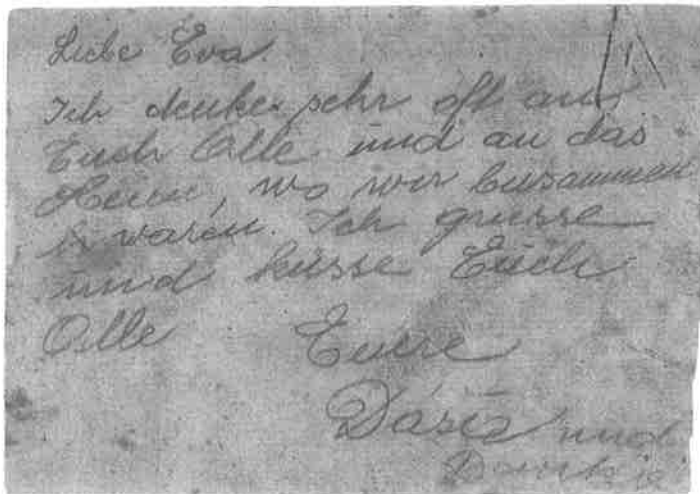 Liebe Eva
Ich denke sehr oft an
Euch Alle und an das
Heim, wo wir beisammen
waren. Ich grüsse
und küsse Euch
Alle Euere
Dasia und